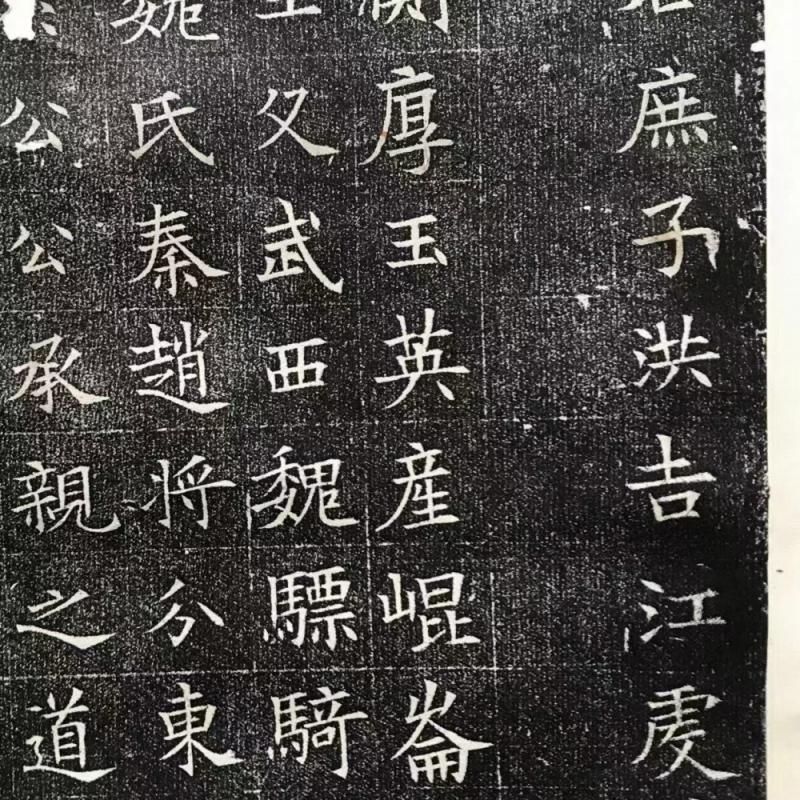 庶子洪吉江虔
厚玉英產崐崘
父武西魏驃騎
氏秦趙将分東
公公承親之道